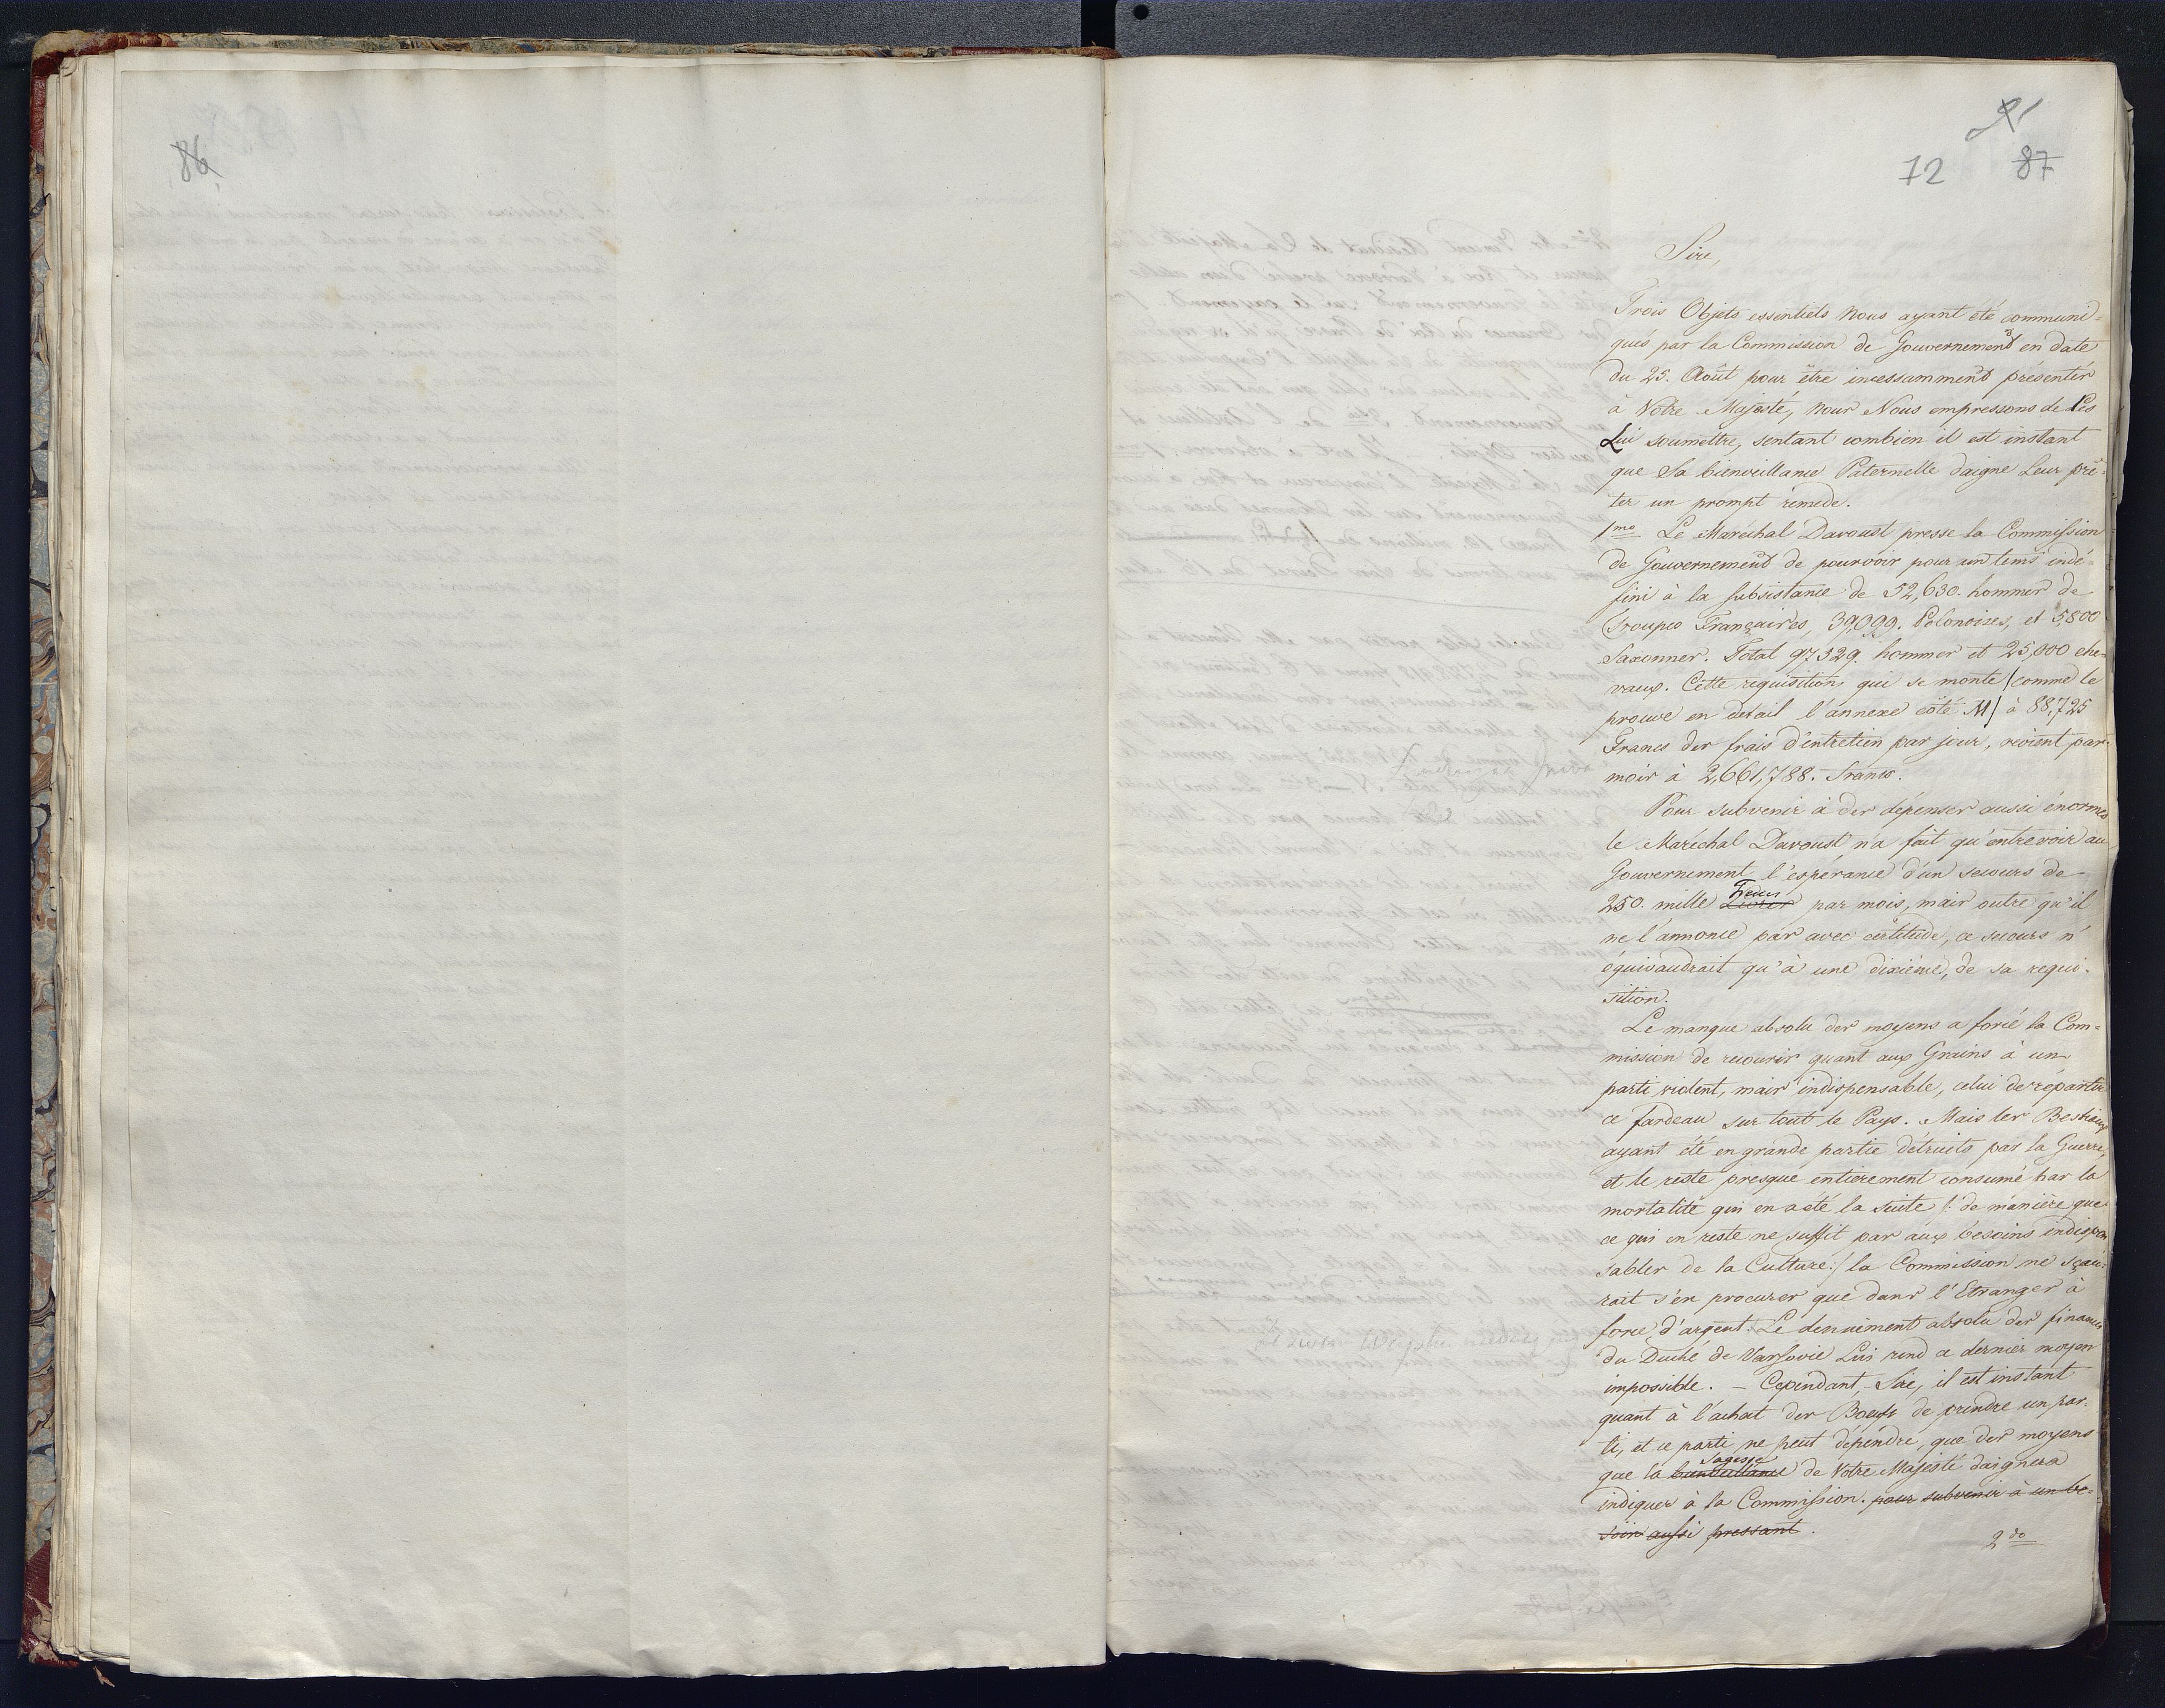 86
91
72 87
Sire,
Trois Objets essentiels nous ayant été communi=
qués par la Commission de Gouvernement en date
du 25. Août pour être incessamment présentés
à Votre Majesté, nous Nous empressons de Les
Lui soumettre, sentant combien il est instant
que Sa bienveillance Paternelle daigne Leur prê=
ter un prompt rémede.
1mo Le Maréchal Davoust presse la Commission
de Gouvernement de pourvoir pour un tems indé=
fini à la subsistance de 52,630. hommes de
Troupes Françaises, 39,099. Polonoises, et 5,800
Saxonnes. Total 97,529. hommes et 25,000 che=
vaux. Cette requisition qui se monte (comme le
prouve en detail l'annexe côté M) à 88,725
Francs des frais d'entretien par jour, revient par
mois à 2,661,788. Francs.
Pour subvenir à des dépenses aussi énormes
le Maréchal Davoust n'a fait qu'entrevoir au
Gouvernement l'espérance d'un secours de
250. mille Livres par mois, mais outre qu'il
ne l'annonce pas avec certitude, ce secours n'
équivaudrait qu'à une dixième, de sa requi=
sition.
Le manque absolu des moyens a forcé la Com=
mission de recourir quant aux Grains à un
parti violent, mais indispensable, celui de répartir
ce fardeau sur tout le Pays. Mais les Bestiaux
ayant été en grande partie détruits par la Guerre,
et le reste presque entierement consumé par la
mortalité qui en a été la suite /: de manière que
ce qui en reste ne suffit pas aux besoins indispen
sables de la Culture :/ la Commission ne sçau=
rait s'en procurer que dans l'Etranger à
force d'argent. Le denuement absolu des finances
du Duché de Varsovie Lui rend ce dernier moyen
impossible. – Cependant, Sire, il est instant
quant à l'achat des Boeufs de prendre un par=
ti, et ce parti ne peut dépendre, que des moyens
sagesse
que la bienveillance de Votre Majesté daignera
indiquer à la Commission. pour subvenir à un be=
soin aussi pressant.
2do